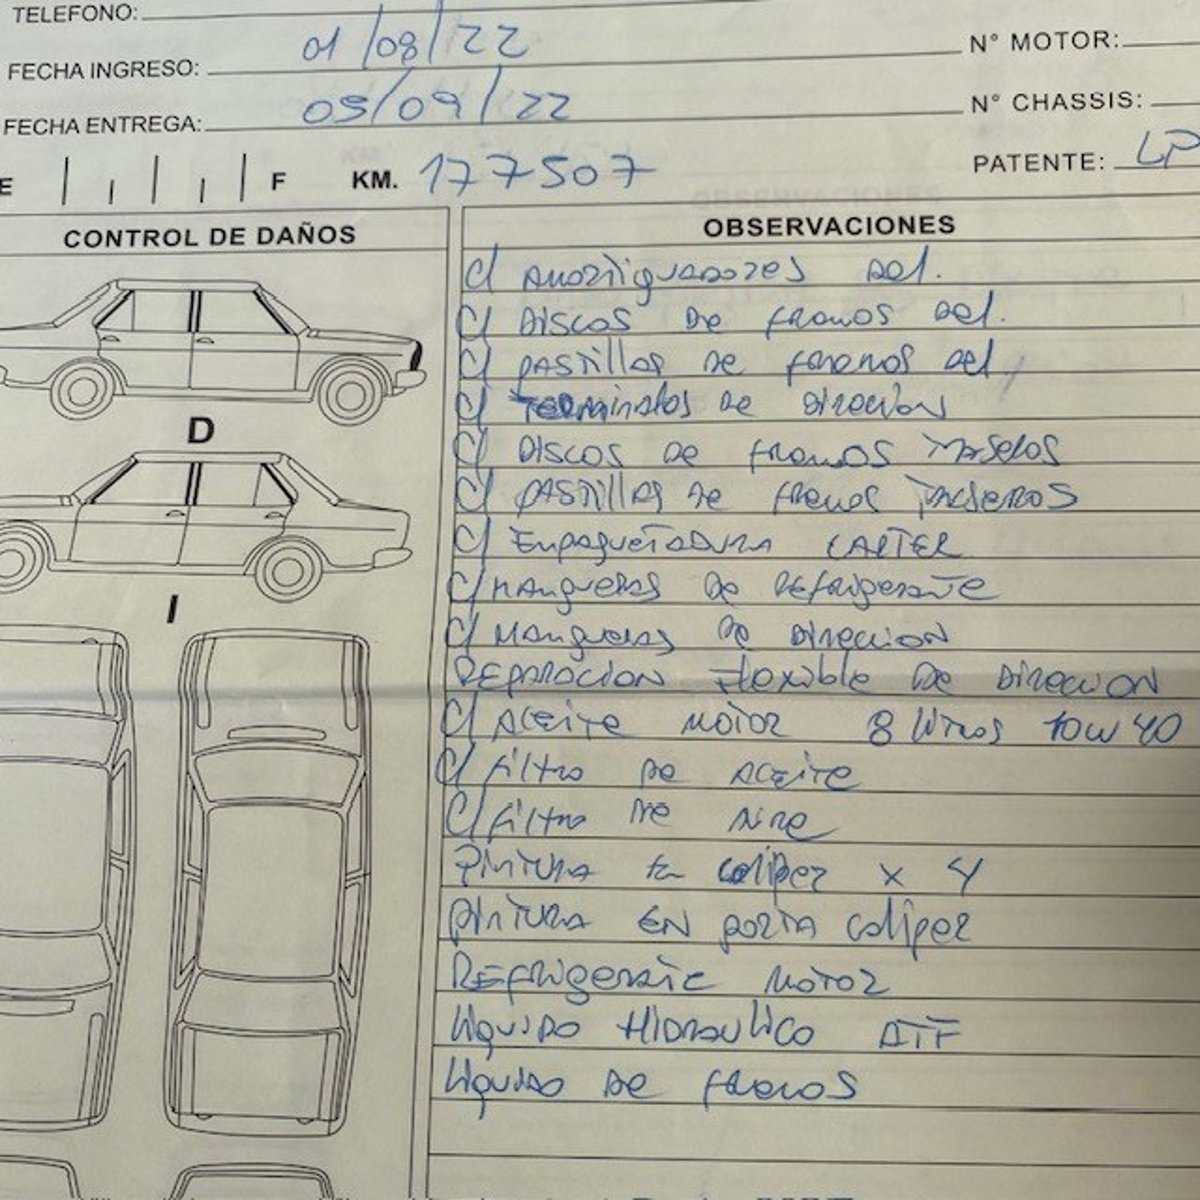 TELEFONO:
FECHA INGRESO: 01/08/22
N° MOTOR:
FECHA ENTREGA: 05/09/22
N° CHASSIS:
E F KM. 177507
PATENTE: LP
CONTROL DE DAÑOS
OBSERVACIONES
C/ Amortiguadores Del.
C/ Discos De frenos Del.
C/ pastillas De frenos Del
C/ Terminales De Direccion
C/ Discos De frenos Traseros
C/ pastillas De frenos Traseros
C/ Empaquetadura CARTER
C/ Mangueras De Refrigerante
C/ Mangueras De Direccion
Reparacion Flexible De Direccion
C/ Aceite Motor 8 litros 10w40
C/ filtro De Aceite
C/ filtro De Aire
Pintura en caliper x 4
Pintura EN porta caliper
Refrigerante Motor
Liquido Hidraulico ATF
Liquido De frenos
D
I